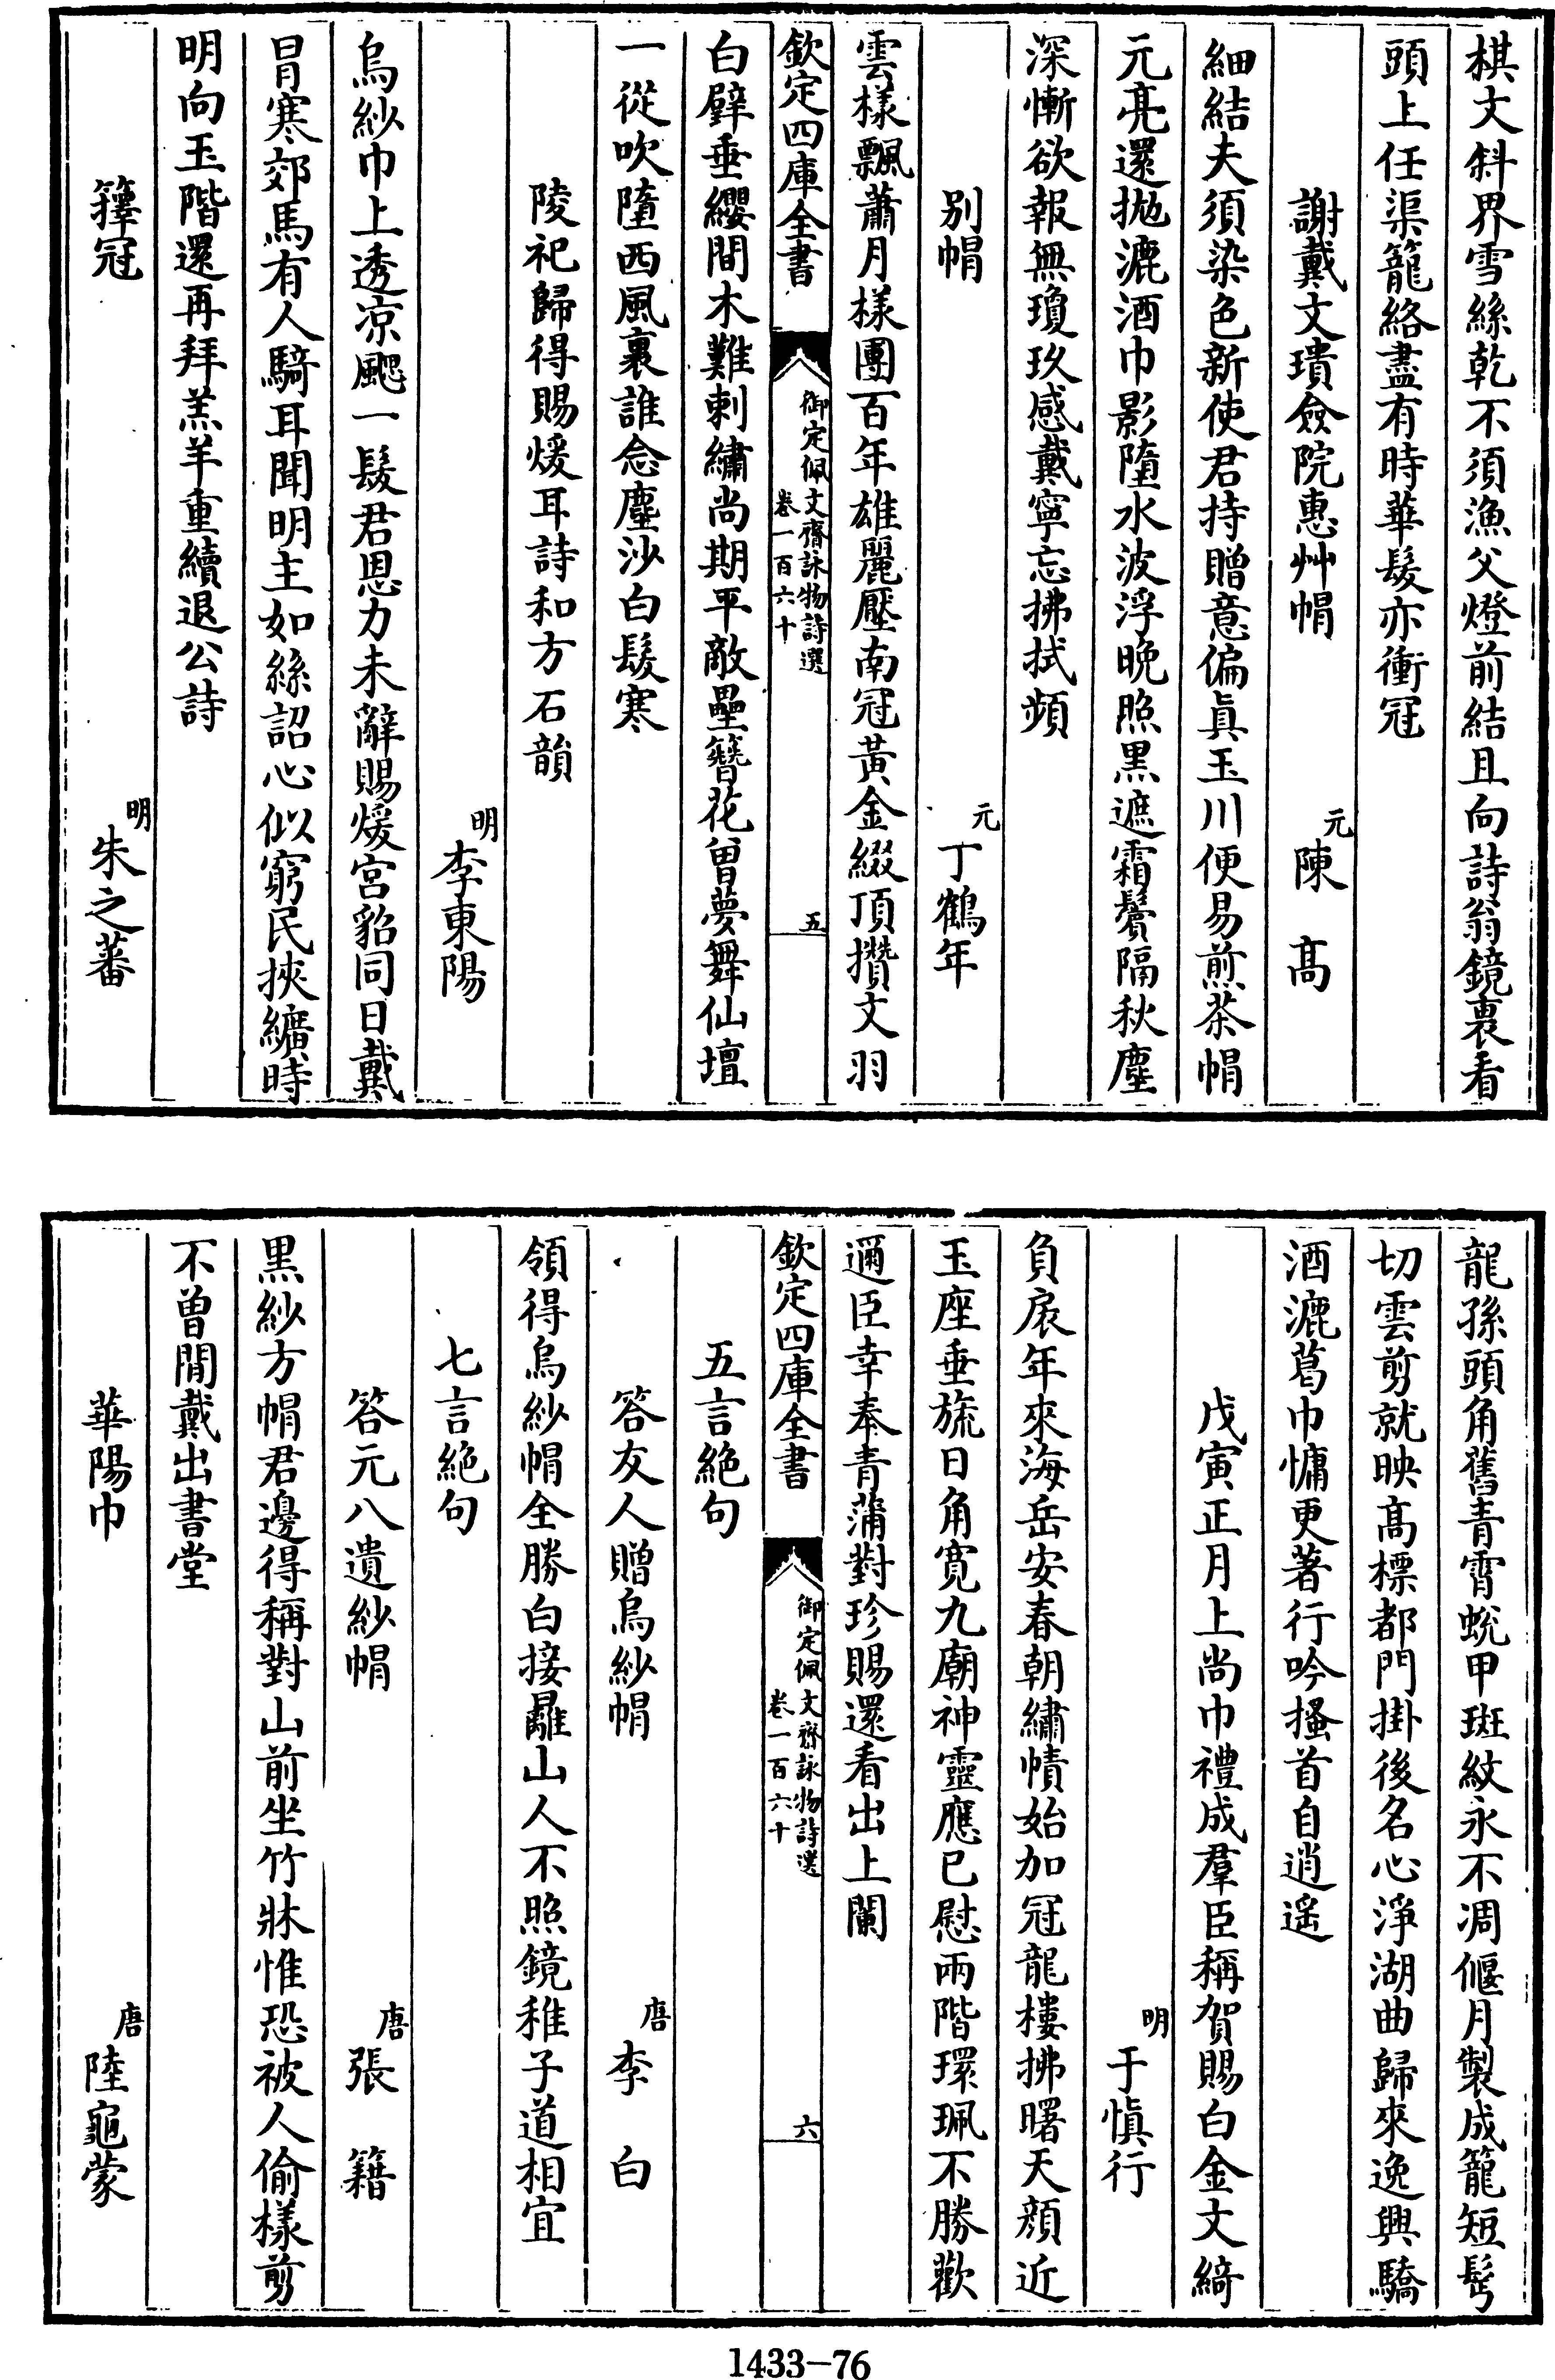 棋文斜界雪絲乾不須漁父燈前結且向詩翁鏡裏看
頭上任渠籠絡盡有時華髮亦衝冠
謝戴文璝僉院惠艸帽
元 陳 髙
細結夫須染色新使君持贈意偏眞玉川便易煎茶帽
元亮還拋漉酒巾影墮水波浮晚照黒遮霜鬢隔秋塵
深慚欲報無瓊玖感戴寧忘拂拭頻
别帽
元 丁鶴年
雲樣飄蕭月樣團百年雄麗壓南冠黃金綴頂攢文羽
欽定四庫全書
御定佩文齋詠物詩選
卷一百六十
五
白璧垂纓間木難刺繡尚期平敵壘簪花曾夢舞仙壇
一從吹墮西風裏誰念塵沙白髮寒
陵祀歸得賜煖耳詩和方石韻
明 李東陽
烏紗巾上透凉颸一髮君恩力未辭賜煖宫貂同日戴
冒寒郊馬有人騎耳聞明主如絲詔心似窮民挾纊時
明向玉階還再拜羔羊重續退公詩
籜冠
明 朱之蕃
龍孫頭角舊青霄蛻甲斑紋永不凋偃月製成籠短髩
切雲剪就映髙標都門掛後名心淨湖曲歸來逸興驕
酒漉葛巾慵更著行吟搔首自逍遙
戊寅正月上尚巾禮成羣臣稱賀賜白金文綺
明 于慎行
負扆年來海岳安春朝繡幘始加冠龍樓拂曙天顔近
玉座垂旒日角寛九廟神靈應已慰兩階環珮不勝歡
邇臣幸奉青蒲對珍賜還看出上闌
欽定四庫全書
御定佩文齋詠物詩選
卷一百六十
六
五言絶句
答友人贈烏紗帽
唐 李 白
領得烏紗帽全勝白接䍦山人不照鏡稚子道相宜
七言絶句
答元八遺紗帽
唐 張 籍
黒紗方帽君邊得稱對山前坐竹牀惟恐被人偷樣剪
不曾閒戴出書堂
華陽巾
唐 陸龜蒙
1433-76